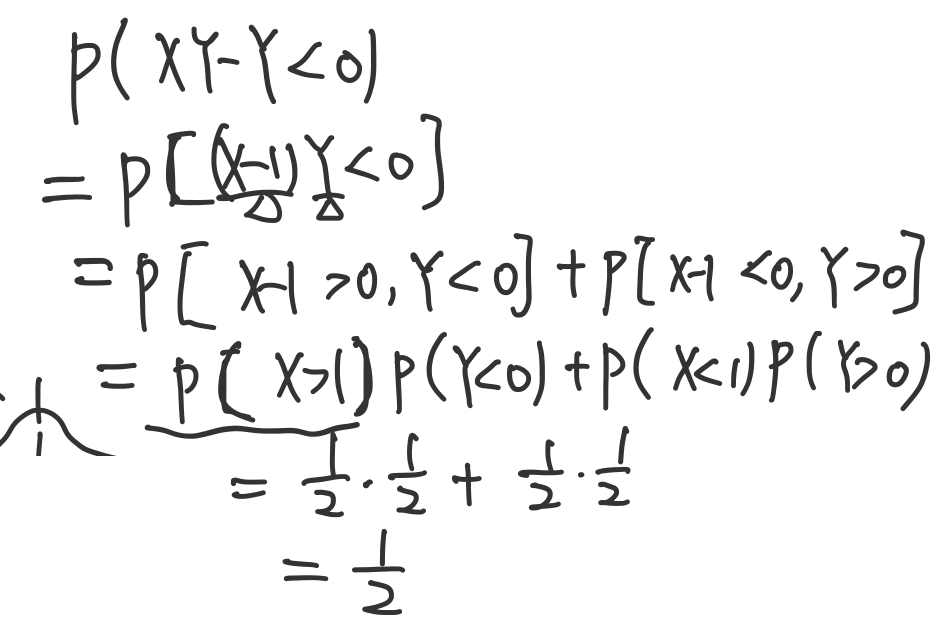 P(XY-Y<0)
=P[(X-1)Y<0]
=P[X-1>0,Y<0]+P[X-1<0,Y>0]
=P(X>1)P(Y<0)+P(X<1)P(Y>0)
=1/2·1/2+1/2·1/2
=1/2